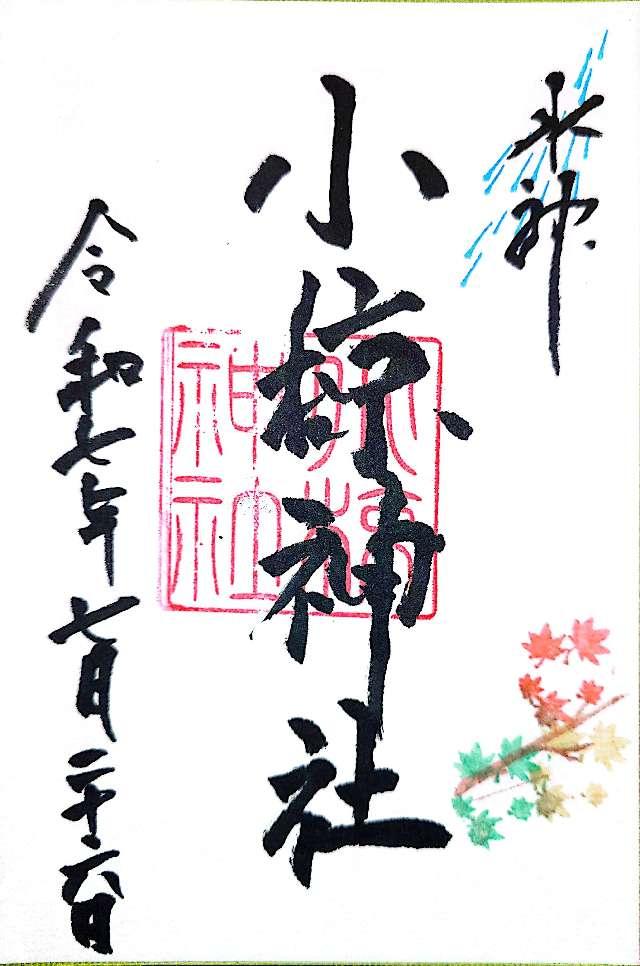 水神
小椋神社
小椋
神社
令和七年七月二十六日